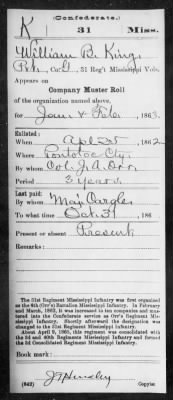 (Confederate.)
K 31 Miss.
William B. King
Pvt., Co. , 31 Reg't Mississippi Vols.
Appears on
Company Muster Roll
of the organization named above,
for Jan & Feb, 1863.
Enlisted:
When Apl 25, 1862
Where Pontotoc Cty.
By whom Col. J. A. Orr
Period 3 years
Last paid:
By whom Maj
To what time Oct. 31, 186
Present or absent Present
Remarks:
The 31st Regiment Mississippi Infantry was first organized
as the 6th (Orr's) Battalion Mississippi Infantry. In February
and March, 1862, it was increased to ten companies and mus-
tered into the Confederate service as Orr's Regiment Mis-
sissippi Infantry. Shortly afterward the designation was
changed to the 31st Regiment Mississippi Infantry.
About April 9, 1865, this regiment was consolidated with
the 3d and 40th Regiments Mississippi Infantry and formed
the 3d Consolidated Regiment Mississippi Infantry.
Book mark:
(642) Copyist.